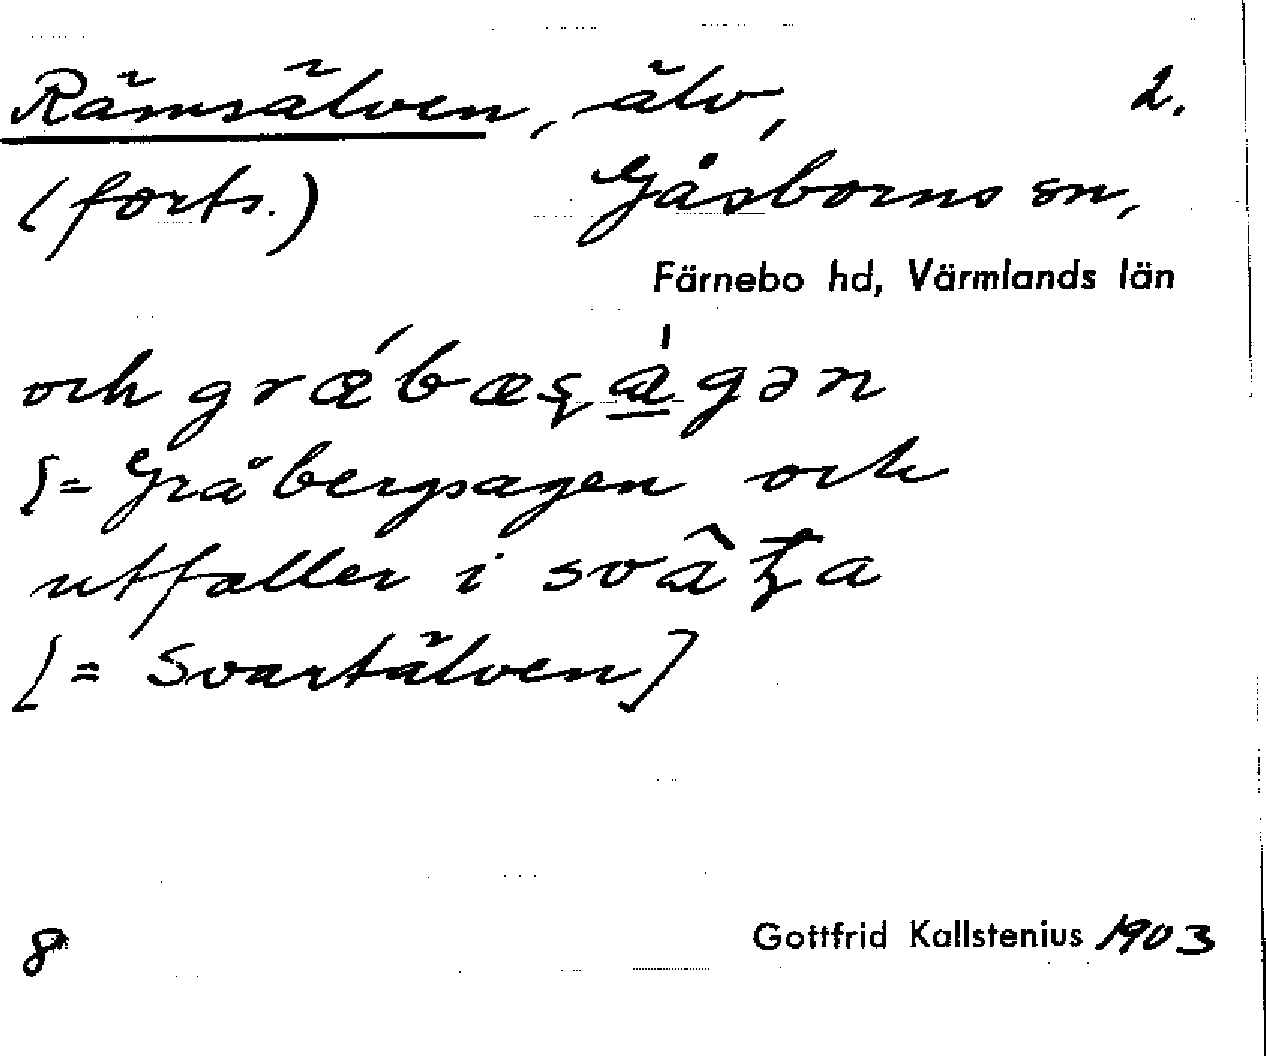 Rämsälven, älv, 2.
(forts.) Gåsborns sn,
Färnebo hd, Värmlands län
och
[= Gråbergsagen och
utfaller i
[= Svartälven]
8 Gottfrid Kallstenius 1903